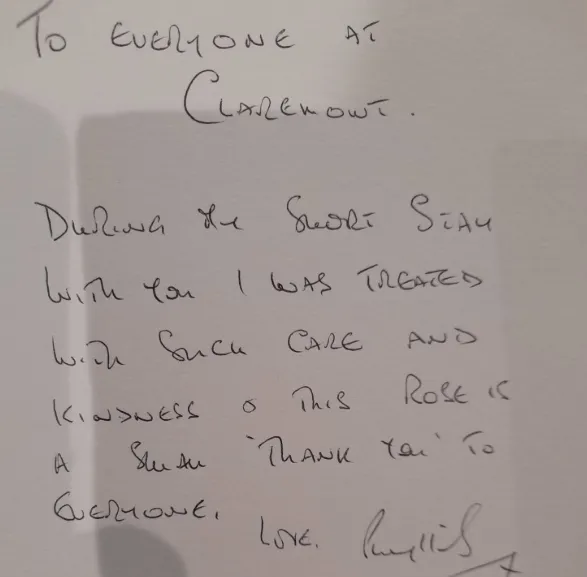 TO EVERYONE AT
CLAREMONT.
DURING MY SHORT STAY
WITH YOU I WAS TREATED
WITH SUCH CARE AND
KINDNESS & THIS ROSE IS
A SMALL 'THANK YOU' TO
EVERYONE.
LOVE. Phyllis
x